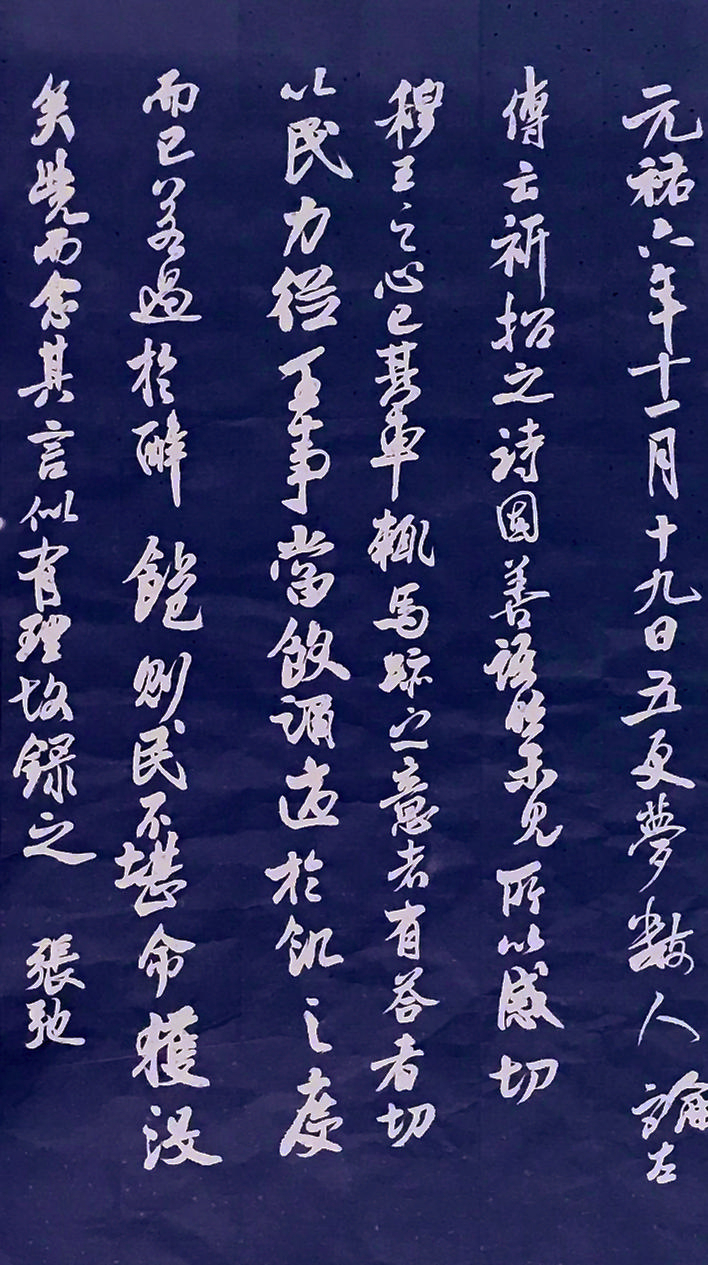 元祐六年十一月十九日五更夢數人論左
傳云祈招之詩固善語然未見所以感切
穆王之心已其車輒馬跡之意者有答者切
以民力從王事當飲酒適於飢之度
而已若過於醉飽則民不堪命獲沒
矣覺而念其言似有理故錄之 張弛